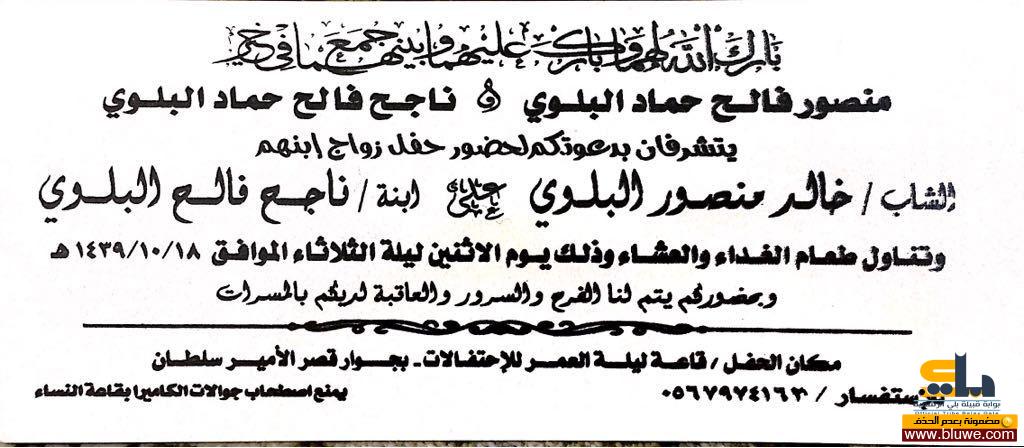 بارك الله لهما وبارك عليهما وجمع بينهما في خير
منصور فالح حماد البلوي و ناجح فالح حماد البلوي
يتشرفان بدعوتكم لحضور حفل زواج إبنهم
الشاب / خالد منصور البلوي على ابنة / ناجح فالح البلوي
وتناول طعام الغداء والعشاء وذلك يوم الاثنين ليلة الثلاثاء الموافق ١٤٣٩/١٠/١٨ هـ
وبحضوركم يتم لنا الفرح والسرور والعاقبة لديكم بالمسرات
مكان الحفل / قاعة ليلة العمر للإحتفالات - بجوار قصر الأمير سلطان
للإستفسار / ٠٥٦٧٩٧٤١٦٣
يمنع اصطحاب جوالات الكاميرا بقاعة النساء
بلي
بوابة قبيلة بلي الرسمية
مضمونة بعدم الحذف
www.bluwe.com